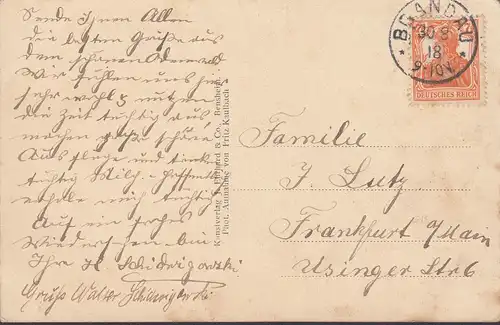 Sende Ihnen Allen
die besten Grüße aus
dem schönen Odenwald
Wir fühlen uns hier
sehr wohl & nutzen
die Zeit tüchtig aus
machen schöne
Ausflüge und trinken
tüchtig Milch - hoffentlich
erhole mich tüchtig
Auf ein frohes
Wiedersehen bin
Ihr
Gruss Walter
Kunstverlag J. & Co., Bensheim
Phot. Aufnahme von Fritz Kaulbach
BRANDAU
30 9
18
9-10V
DEUTSCHES REICH
Familie
J. Lutz
Frankfurt a/Main
Usinger Str 6